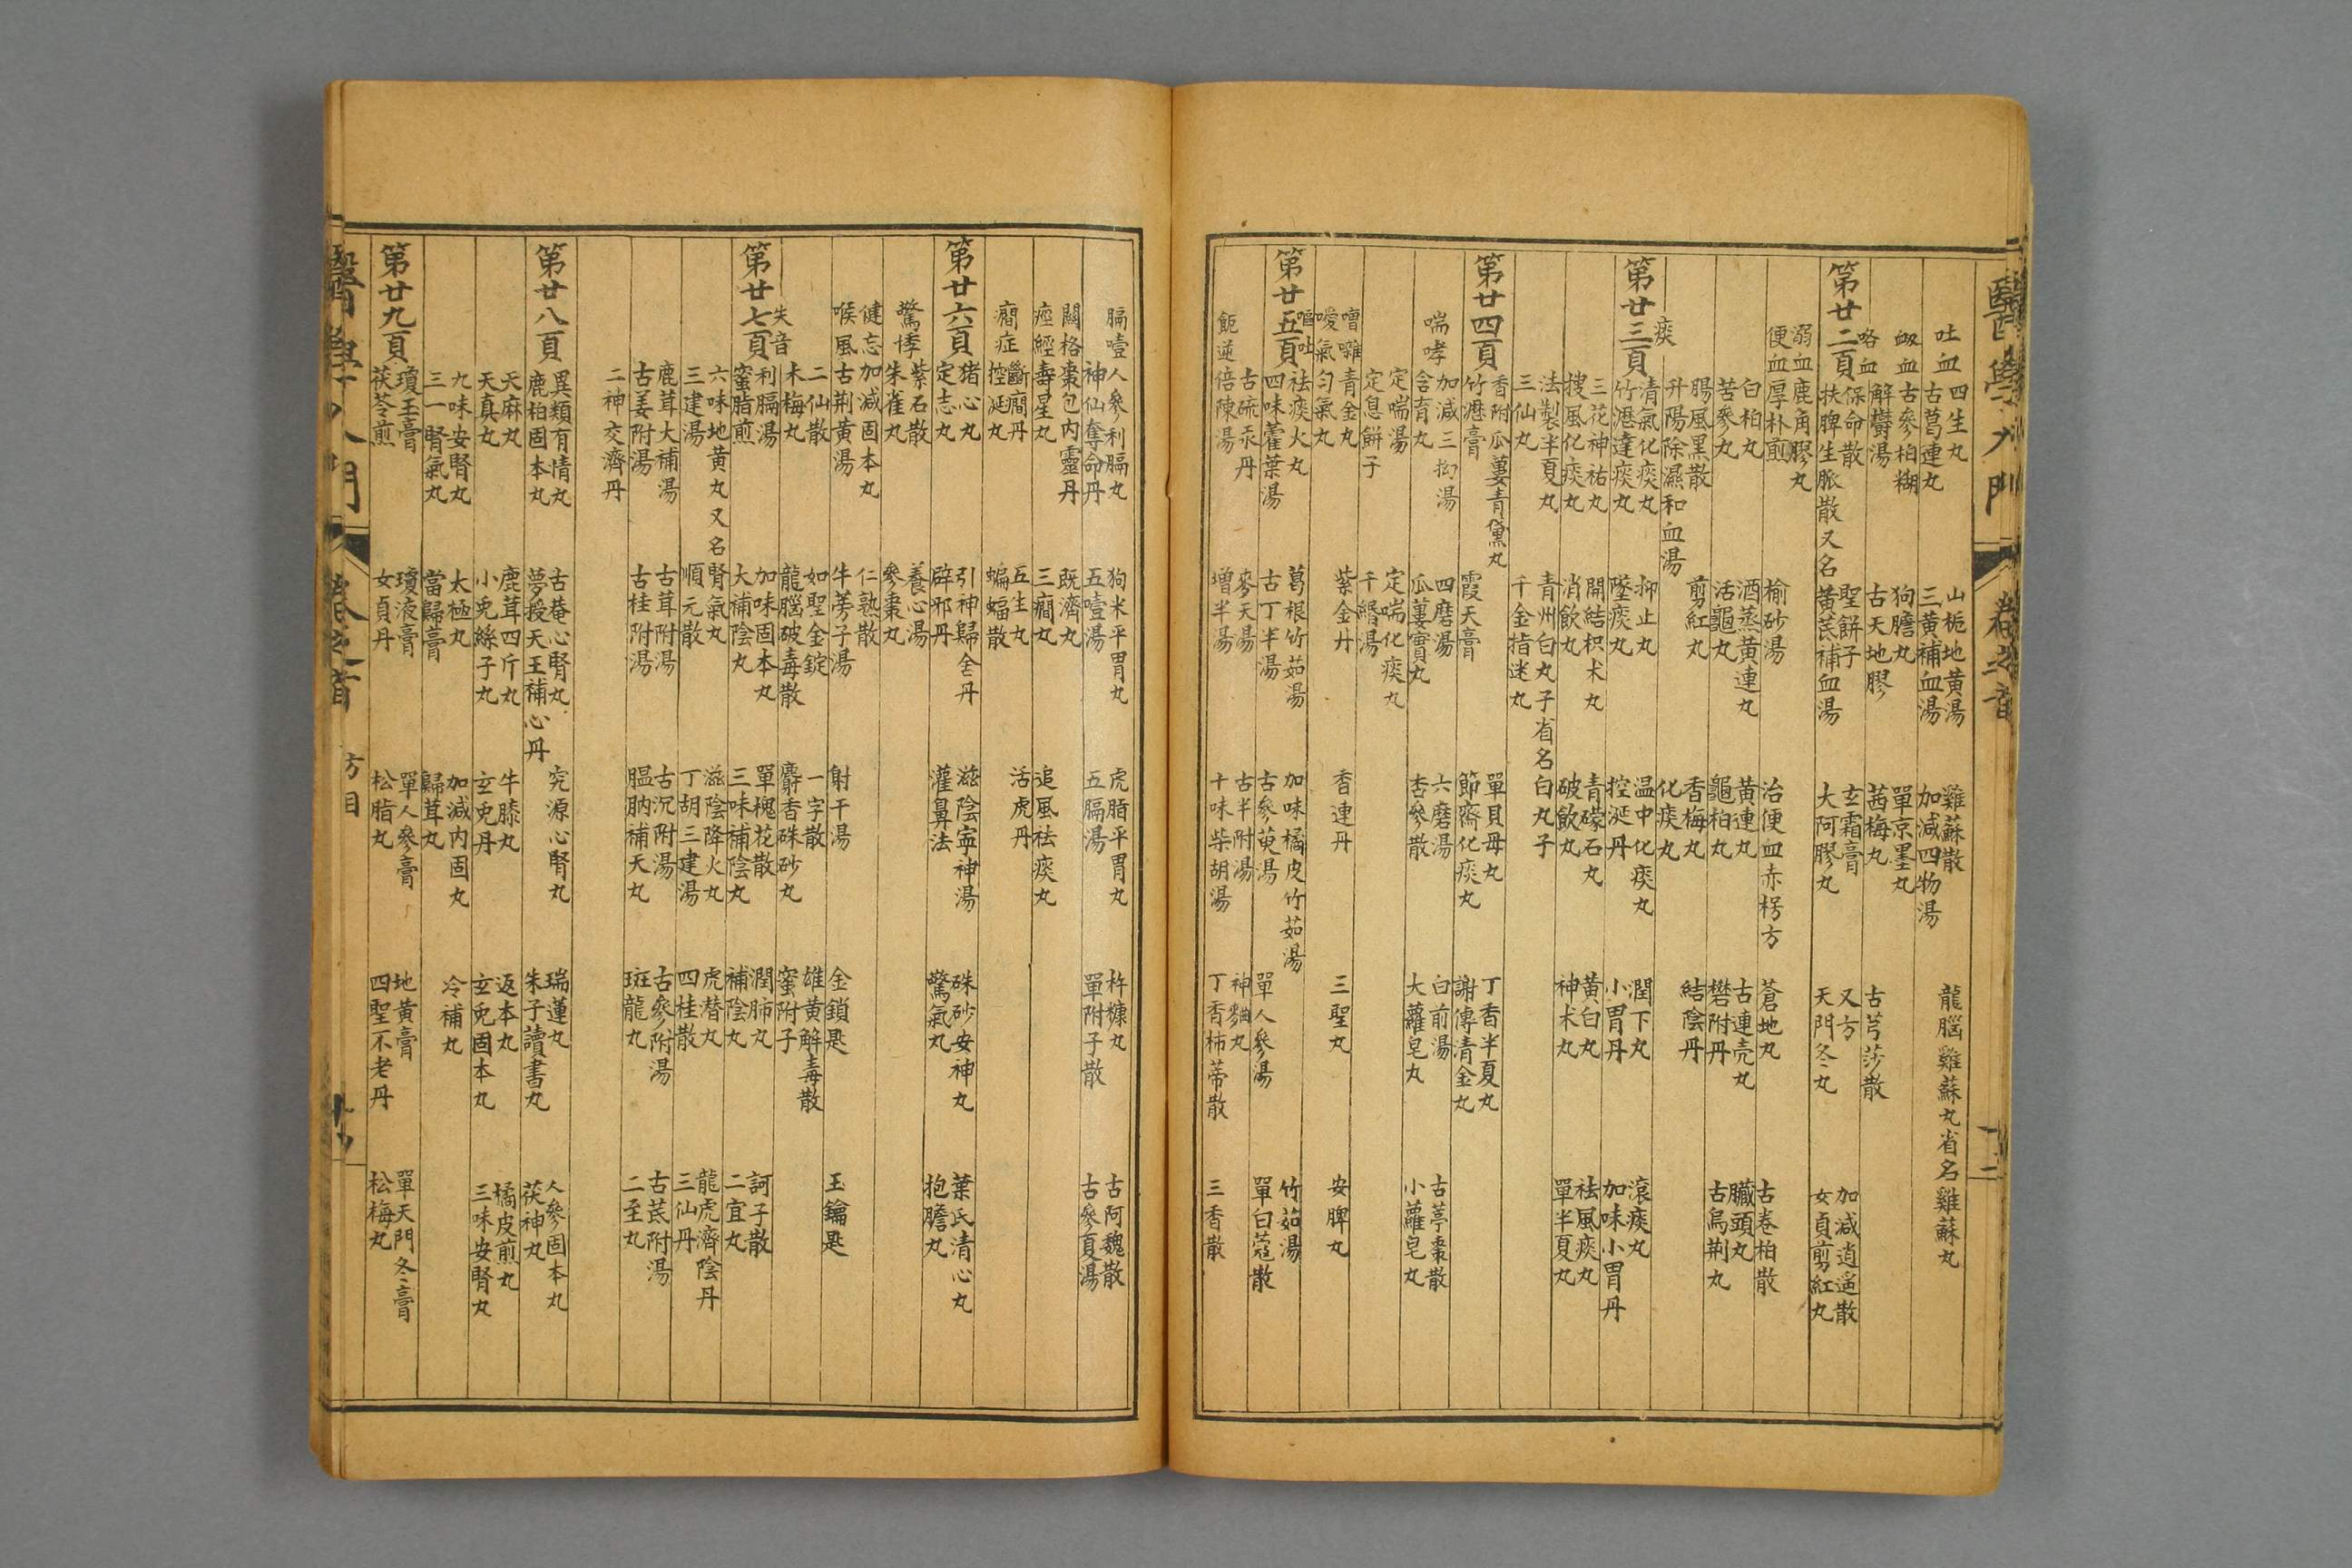 醫學入門 卷之首
吐血 四生丸 山梔地黃湯 雞蘇散 龍腦雞蘇丸省名雞蘇丸
古葛連丸 三黃補血湯 加減四物湯
衂血 古參柏糊 狗膽丸 單京墨丸
解鬱湯 古天地膠 茜梅丸 古芎莎散
咯血
第廿二頁
保命散 聖餅子 玄霜膏 又方 加減逍遙散
扶脾生脈散又名黃芪補血湯 大阿膠丸 天門冬丸 女貞剪紅丸
溺血 鹿角膠丸
便血 厚朴煎 榆砂湯 治便血赤柺方 蒼地丸 古卷柏散
白柏丸 酒蒸黃連丸 黃連丸 古連壳丸 臟頭丸
苦參丸 活龜丸 龜柏丸 礬附丹 古烏荆丸
腸風黑散 剪紅丸 香梅丸 結陰丹
升陽除濕和血湯 化痰丸
痰
第廿三頁
清氣化痰丸 抑止丸 温中化痰丸 潤下丸 滾痰丸
竹瀝達痰丸 墜痰丸 控涎丹 小胃丹 加味小胃丹
三花神祐丸 開結枳术丸 青礞石丸 黃白丸 祛風痰丸
搜風化痰丸 消飲丸 破飲丸 神术丸 單半夏丸
法製半夏丸 青州白丸子省名白丸子
三仙丸 千金指迷丸
第廿四頁
香附瓜蔞青黛丸 單貝母丸 丁香半夏丸
竹瀝膏 霞天膏 節齋化痰丸 謝傳清金丸
喘哮 加減三拗湯 四磨湯 六磨湯 白前湯 古葶棗散
瓜蔞實丸 杏參散 大蘿皂丸 小蘿皂丸
定喘湯 定喘化痰丸
定息餅子 千緡湯
嘈囃 青金丸
噯氣 勻氣丸 紫金丹 香連丹 三聖丸 安脾丸
嘔吐
第廿五頁
祛痰火丸 葛根竹茹湯 加味橘皮竹茹湯 竹茹湯
四味藿葉湯 古丁半湯 古參萸湯 單人參湯 單白蔻散
古硫汞丹 麥天湯 古半附湯 神麯丸
飥逆 倍陳湯 增半湯 十味柴胡湯 丁香柿蒂散 三香散
膈噎 人參利膈丸 狗米平胃丸 虎脂平胃丸 杵糠丸 古阿魏散
神仙奪命丹 五噎湯 五膈湯 單附子散 古參夏湯
關格 棗包內靈丹 既濟丸
痙經 壽星丸 三癎丸 追風祛痰丸
癎症 斷癎丹 五生丸 活虎丹
控涎丸 蝙蝠散
第廿六頁
猪心丸 引神歸舍丹 滋陰寧神湯 硃砂安神丸 葉氏清心丸
定志丸 辟邪丹 灌鼻法 驚氣丸 抱膽丸
驚悸 紫石散 養心湯
朱雀丸 參棗丸
健忘 加減固本丸 仁熟散
喉風 古荆黃湯 牛蒡子湯 射干湯 金鎖匙 玉鑰匙
二仙散 如聖金錠 一字散 雄黃解毒散
木梅丸 龍腦破毒散 麝香硃砂丸 蜜附子
失音
第廿七頁
利膈湯 加味固本丸 單槐花散 潤肺丸 訶子散
蜜脂煎 大補陰丸 三味補陰丸 補陰丸 二宜丸
六味地黃丸又名腎氣丸 滋陰降火丸 虎潛丸 龍虎濟陰丹
三建湯 順元散 丁胡三建湯 四桂散 三仙丹
鹿茸大補湯 古茸附湯 古沉附湯 古參附湯 古芪附湯
古姜附湯 古桂附湯 膃肭補天丸 斑龍丸 二至丸
二神交濟丹
第廿八頁
異類有情丸 古菴心腎丸 究源心腎丸 瑞蓮丸 人參固本丸
鹿柏固本丸 夢授天王補心丹 朱子讀書丸 茯神丸
天麻丸 鹿茸四斤丸 牛膝丸 返本丸 橘皮煎丸
天真丸 小兔絲子丸 玄兔丹 玄兔固本丸 三味安腎丸
九味安腎丸 太極丸 加減內固丸 冷補丸
三一腎氣丸 當歸膏 歸茸丸
第廿九頁
瓊玉膏 瓊液膏 單人參膏 地黃膏 單天門冬膏
茯苓煎 女貞丹 松脂丸 四聖不老丹 松梅丸
醫學入門 卷之首 方目